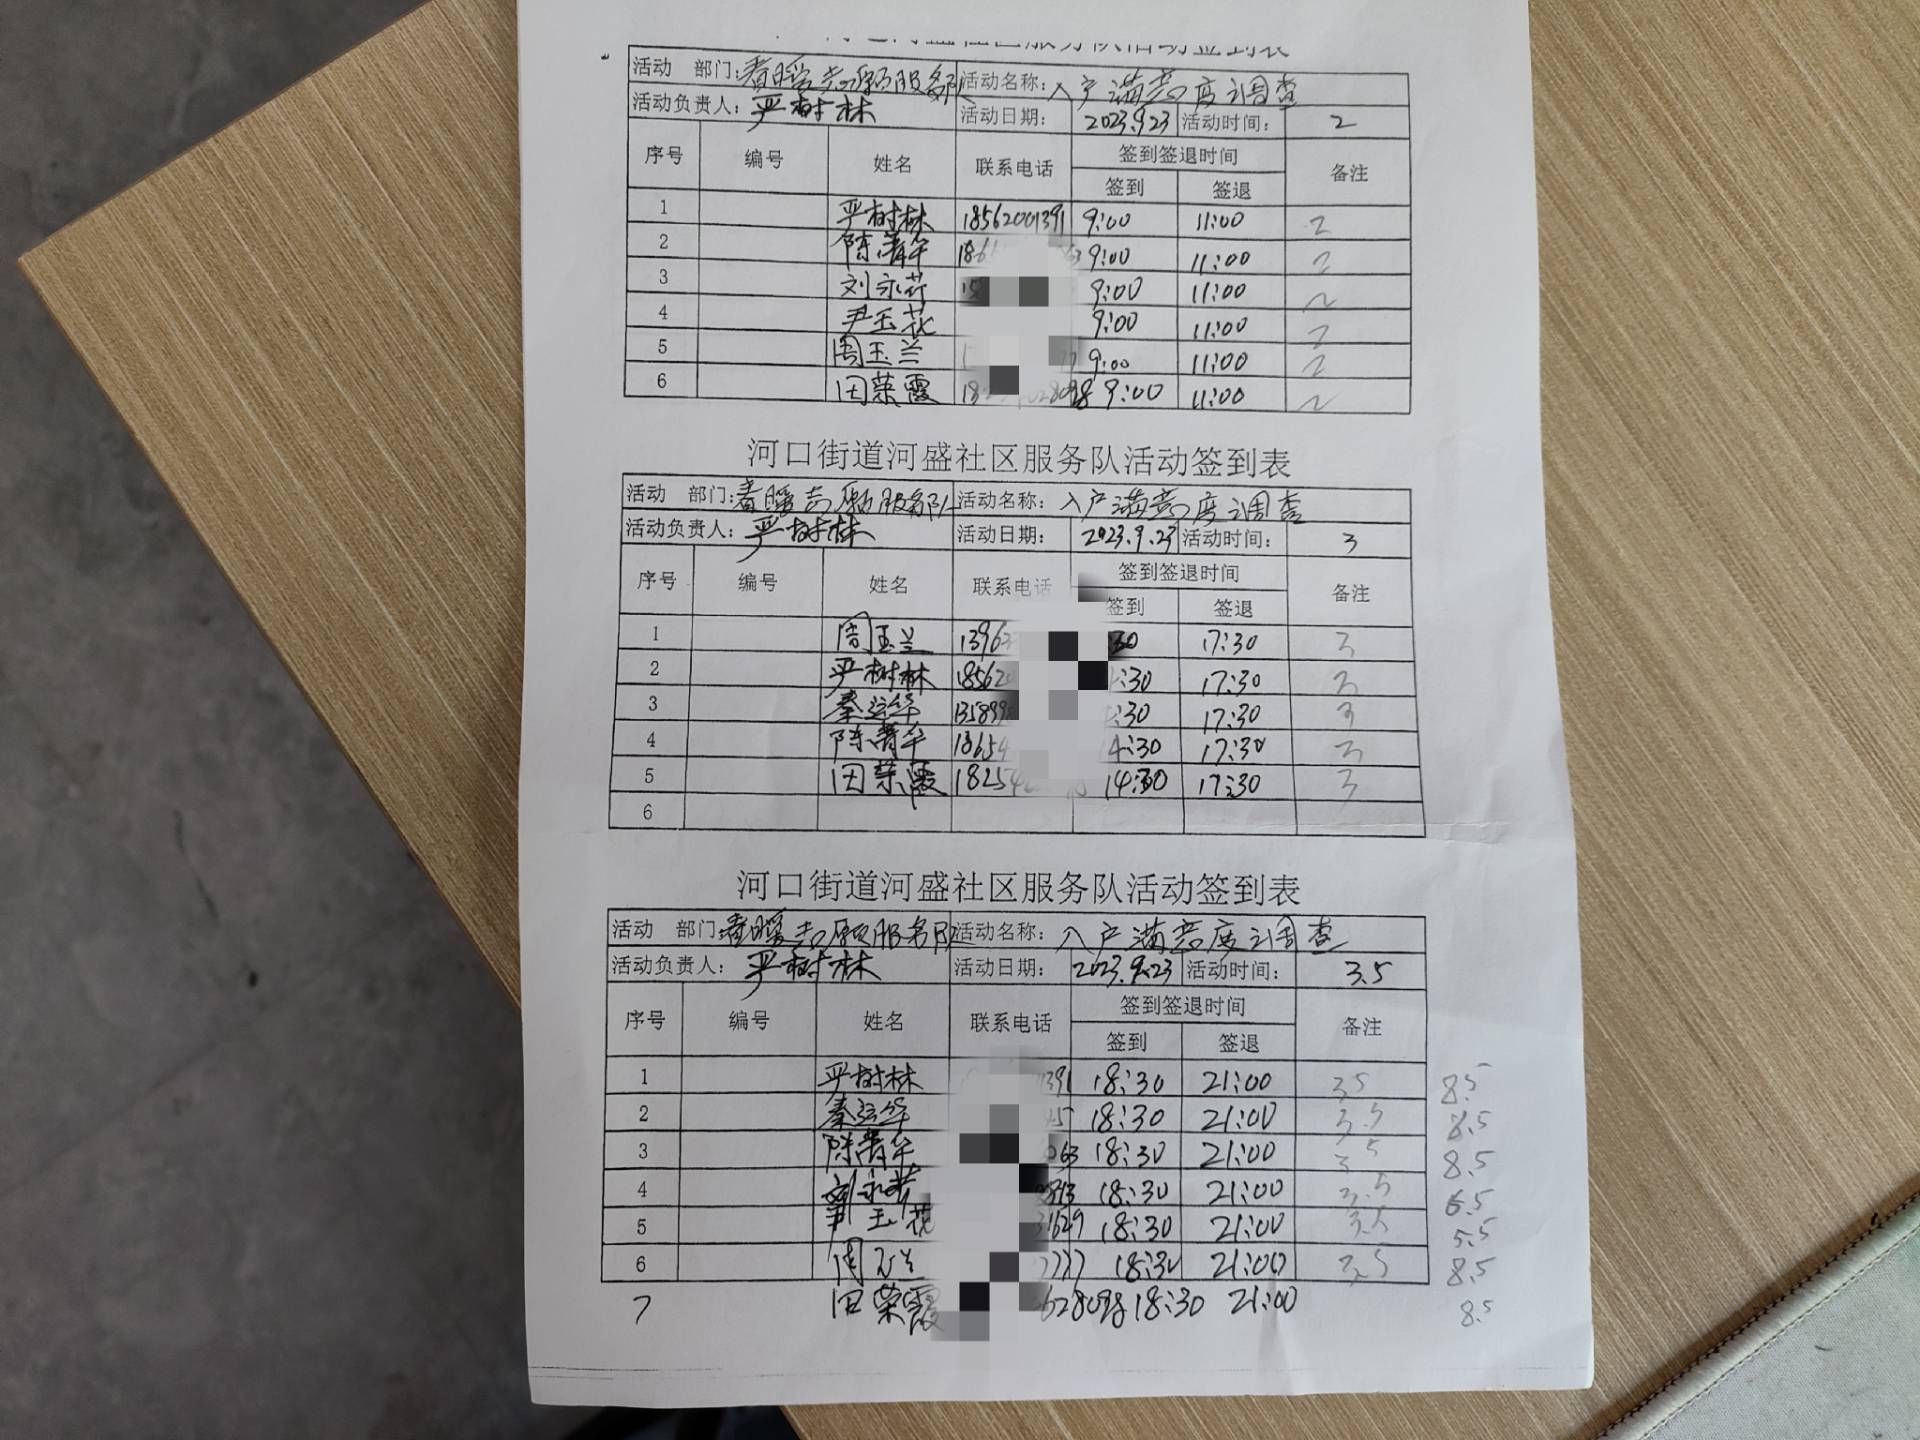 河盛社区服务队活动签到表
活动 部门: 春暖志愿服务队 活动名称: 入户满意度调查
活动负责人: 严树林 活动日期: 2023.9.23 活动时间: 2
序号 编号 姓名 联系电话 签到签退时间 备注
签到 签退
1 严树林 18562001391 9:00 11:00 2
2 陈青华 9:00 11:00 2
3 刘永芹 9:00 11:00 2
4 尹玉花 9:00 11:00 2
5 周玉兰 9:00 11:00 2
6 田荣霞 9:00 11:00 2
河口街道河盛社区服务队活动签到表
活动 部门: 春暖志愿服务队 活动名称: 入户满意度调查
活动负责人: 严树林 活动日期: 2023.9.23 活动时间: 3
序号 编号 姓名 联系电话 签到签退时间 备注
签到 签退
1 周玉兰 1396 :30 17:30 3
2 严树林 18562 :30 17:30 3
3 秦运华 135899 :30 17:30 3
4 陈青华 18654 14:30 17:30 3
5 田荣霞 18254 14:30 17:30 3
6
河口街道河盛社区服务队活动签到表
活动 部门: 春暖志愿服务队 活动名称: 入户满意度调查
活动负责人: 严树林 活动日期: 2023.9.23 活动时间: 3.5
序号 编号 姓名 联系电话 签到签退时间 备注
签到 签退
1 严树林 1391 18:30 21:00 3.5 8.5
2 秦运华 45 18:30 21:00 3.5 8.5
3 陈青华 063 18:30 21:00 3.5 8.5
4 刘永芹 18:30 21:00 3.5 6.5
5 尹玉花 31629 18:30 21:00 3.5 5.5
6 周玉兰 7777 18:30 21:00 3.5 8.5
7 田荣霞 628098 18:30 21:00 8.5